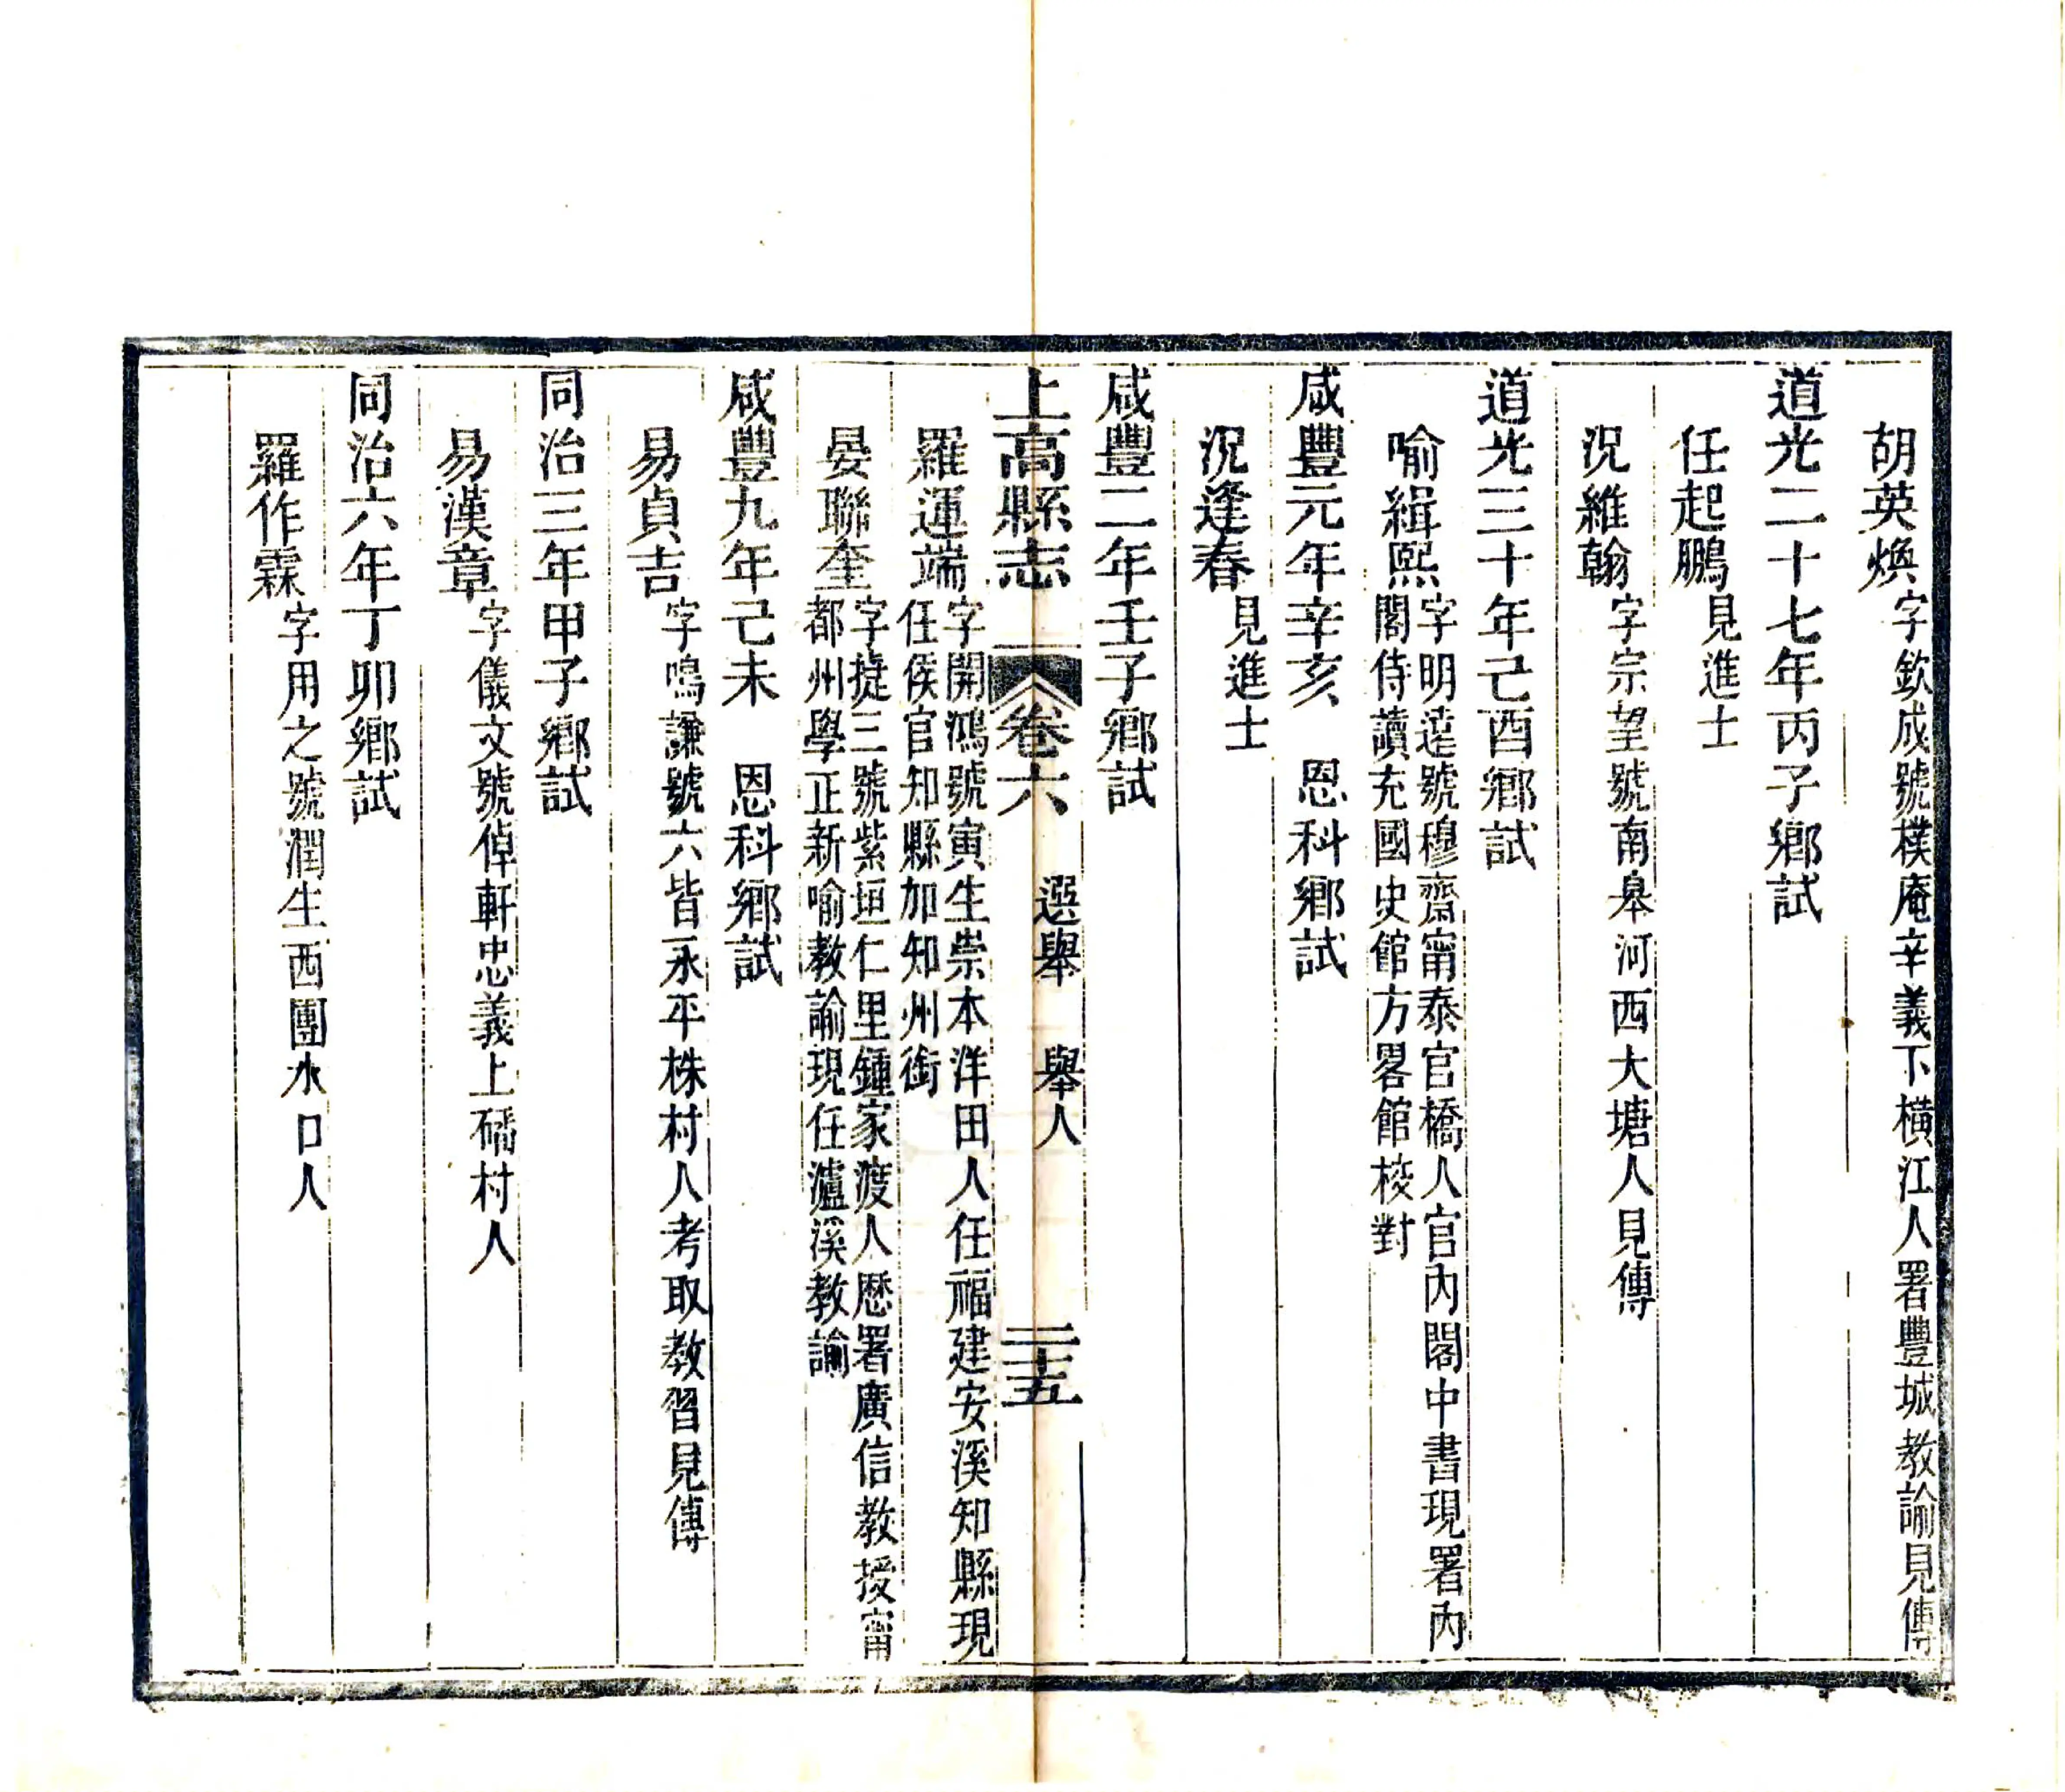 胡英煥字欽成號樸庵辛義下橫江人署豐城教諭見傳
道光二十七年丙子鄉試
任起鵬見進士
況維翰字宗望號南皋河西大塘人見傳
道光三十年己酉鄉試
喻緝熙字明遠號穆齋甯泰官橋人官內閣中書現署內
閣侍讀充國史館方畧館校對
咸豐元年辛亥　恩科鄉試
況逢春見進士
咸豐二年壬子鄉試
上高縣志　卷六　選舉　舉人　二十五
羅運端字開鴻號寅生崇本洋田人任福建安溪知縣現
任侯官知縣加知州銜
晏聯奎字㨗三號紫垣仁里鍾家渡人歴署廣信教授甯
都州學正新喻教諭現任瀘溪教諭
咸豐九年己未　恩科鄉試
易貞吉字鳴謙號六皆永平株村人考取教習見傳
同治三年甲子鄉試
易漢章字儀文號倬軒忠義上磻村人
同治六年丁卯鄉試
羅作霖字用之號潤生西團水口人